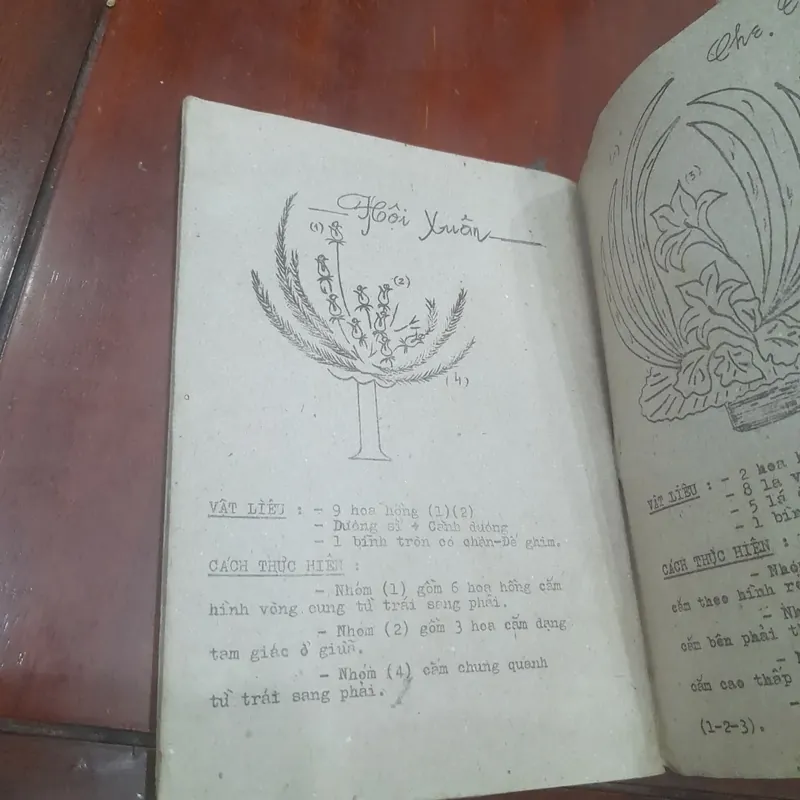 Hội Xuân
(1)
(2)
(4)
VẬT LIỆU : - 9 hoa hồng (1)(2)
- Dương sỉ + Cành dương
- 1 bình tròn có chân-Đế ghim.
CÁCH THỰC HIỆN :
- Nhóm (1) gồm 6 hoa hồng cắm
hình vòng cung từ trái sang phải.
- Nhóm (2) gồm 3 hoa cắm dạng
tam giác ở giữa.
- Nhóm (4) cắm chung quanh
từ trái sang phải.
Che.
(3)
VẬT LIỆU : - 2 hoa
- 8 lá
- 5 lá
- 1 bìn
CÁCH THỰC HIỆN :
- Nhóm
cắm theo hình
- Nh
cắm bên phải
cắm cao thấp
-
(1-2-3).